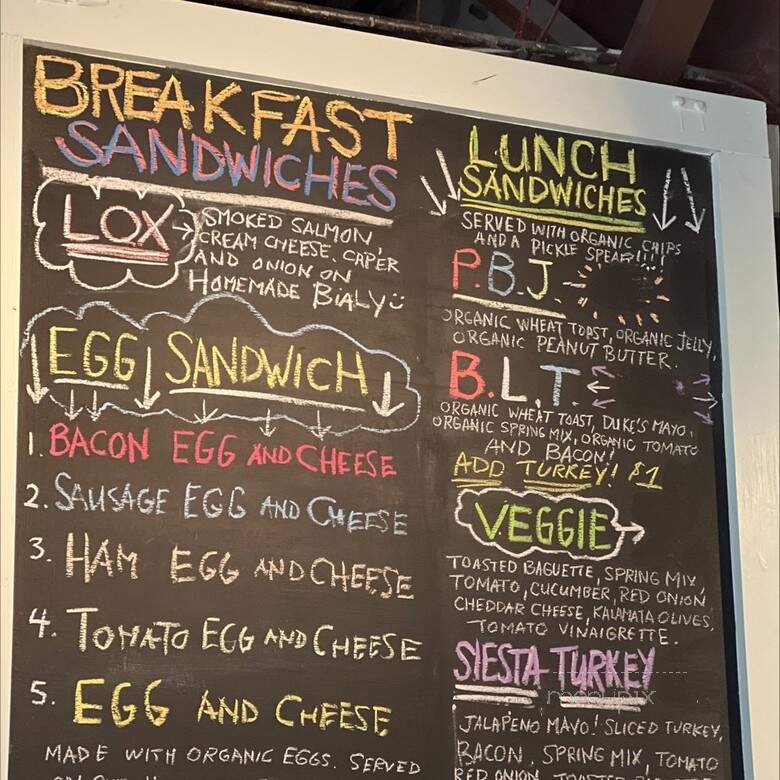 BREAKFAST
SANDWICHES
LOX
SMOKED SALMON,
CREAM CHEESE, CAPER
AND ONION ON
HOMEMADE BIALY
EGG SANDWICH
1. BACON EGG AND CHEESE
2. SAUSAGE EGG AND CHEESE
3. HAM EGG AND CHEESE
4. TOMATO EGG AND CHEESE
5. EGG AND CHEESE
MADE WITH ORGANIC EGGS. SERVED
LUNCH
SANDWICHES
SERVED WITH ORGANIC CHIPS
AND A PICKLE SPEAR!!!!
P.B.J.
ORGANIC WHEAT TOAST, ORGANIC JELLY,
ORGANIC PEANUT BUTTER.
B.L.T.
ORGANIC WHEAT TOAST, DUKE'S MAYO,
ORGANIC SPRING MIX, ORGANIC TOMATO
AND BACON!
ADD TURKEY! $1
VEGGIE
TOASTED BAGUETTE, SPRING MIX,
TOMATO, CUCUMBER, RED ONION
CHEDDAR CHEESE, KALAMATA OLIVES,
TOMATO VINAIGRETTE.
SIESTA TURKEY
menupix
JALAPENO MAYO! SLICED TURKEY,
BACON, SPRING MIX, TOMATO
RED ONION, TOASTED